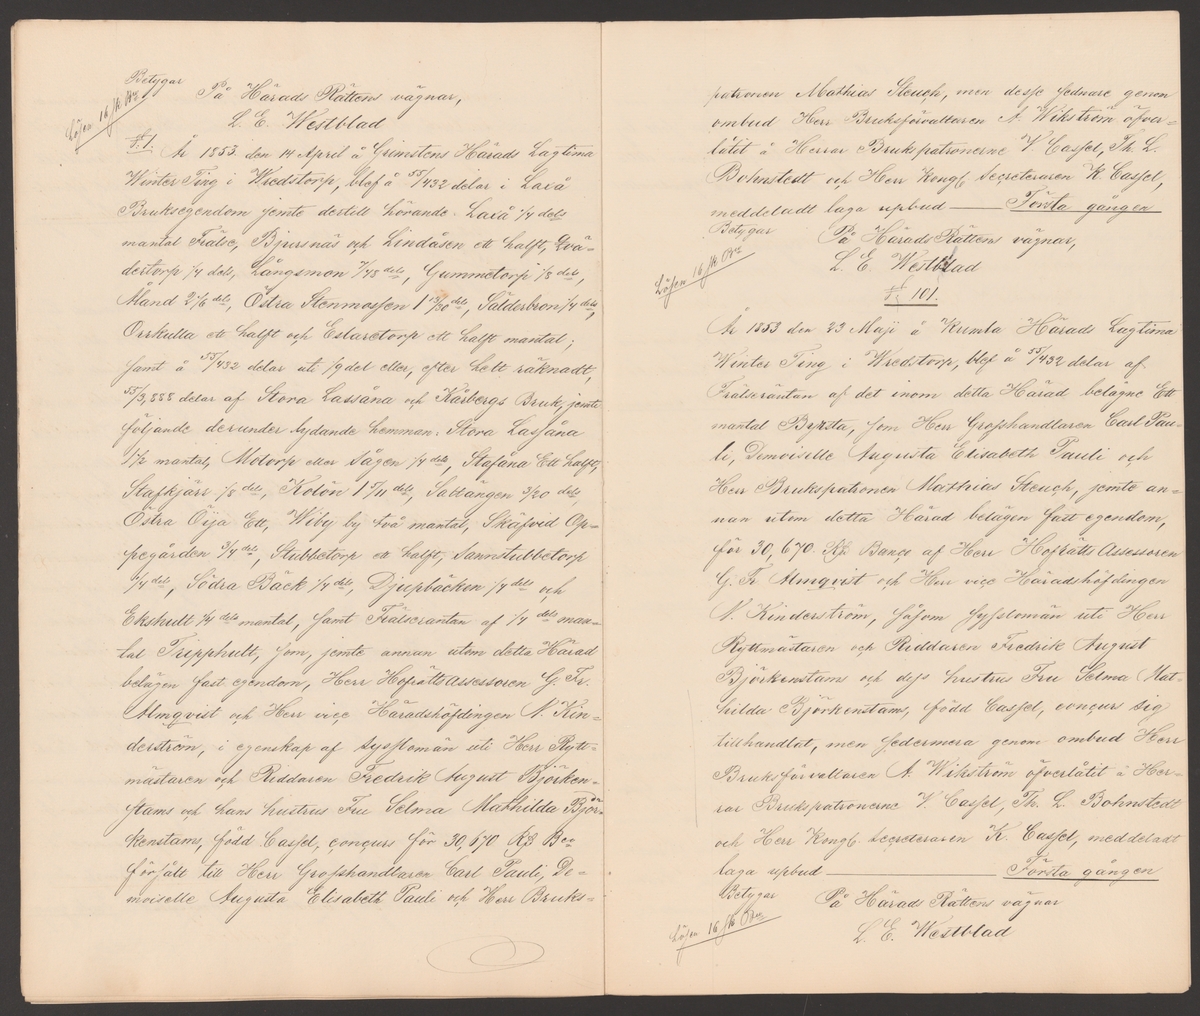 Betygar
Lösen 16 sk Bco
På Härads Rättens vägnar,
L. E. Westblad
§.1.
År 1853 den 14 April å Grimstens Härads Lagtima
Winter Ting i Wredstorp, blef å 55/432 delar i Laxå
Bruksegendom jemte dertill hörande. Laxå 1/4 dels
mantal Frälse, Bjursnäs och Lindåsen ett halft, Qvä-
dertorp 1/4 dels, Långsmon 7/48 dels, Gummetorp 1/8 dels,
Åland 2 1/6 dels, Östra Stenmossen 1 13/30 dels, Sälderbron 1/4 dels,
Orrkulla ett halft och Eslaretorp ett halft mantal;
samt å 55/432 delar uti 1/9 del eller, efter helt räknadt,
55/3,888 delar af Stora Lassåna och Kårbergs Bruk, jemte
följande derunder lydande hemman: Stora Lassåna
1 1/2 mantal, Motorp eller Sågen 1/4 dels, Stafåna Ett halft,
Stafkjärr 1/8 dels, Kolön 1 5/11 dels, Saltängen 3/20 dels
Östra Öija Ett, Wiby by två mantal, Skäfvid Op-
pegården 3/4 dels, Stubbetorp ett halft, Sannstubbetorp
1/4 dels, Södra Bäck 1/4 dels, Djupbäcken 1/4 dels och
Ekshult 1/4 dels mantal, samt Frälseräntan af 1/4 dels man-
tal Tripphult, som, jemte annan utom detta Härad
belägen fast egendom, Herr HofrättsAssessoren G. Fr.
Almqvist och Herr vice Häradshöfdingen N. Kin-
derström, i egenskap af sysslomän uti Herr Rytt-
mästaren och Riddaren Fredrik August Björken-
stams och hans hustrus Fru Selma Mathilda Björ-
kenstams, född Cassel, concurs för 30,670 Rds Bco
försålt till Herr Grosshandlaren Carl Pauli, De-
moiselle Augusta Elisabeth Pauli och Herr Bruks-
patronen Mathias Steuch, men desse sednare genom
ombud Herr Bruksförvaltaren A. Wikström öfver-
låtit å Herrar Brukspatronerne V. Cassel, Th. L.
Bohnstedt och Herr Kongl. Secreteraren K. Cassel,
meddeladt laga upbud — Första gången
Betygar
På Härads Rättens vägnar,
Lösen 16 sk Bco
L. E. Westblad
§ 101.
År 1853 den 23 Maji å Kumla Härads Lagtima
Winter Ting i Wredstorp, blef å 55/432 delar af
Frälseräntan af det inom detta Härad belägne Ett
mantal Byrsta, som Herr Grosshandlaren Carl Pau-
li, Demoiselle Augusta Elisabeth Pauli och
Herr Brukspatronen Mathias Steuch, jemte an-
nan utom detta Härad belägen fast egendom,
för 30,670 Rds Banco af Herr HofrättsAssessoren
G. Fr. Almqvist och Herr vice Häradshöfdingen
N. Kinderström, såsom sysslomän uti Herr
Ryttmästaren och Riddaren Fredrik August
Björkenstams och dess hustrus Fru Selma Mat-
hilda Björkenstams, född Cassel, concurs sig
tillhandlat, men sedermera genom ombud Herr
Bruksförvaltaren A. Wikström öfverlåtit å Her-
rar Brukspatronerne V. Cassel, Th. L. Bohnstedt
och Herr Kongl. Secreteraren K. Cassel, meddeladt
laga upbud — Första gången
Betygar
På Härads Rättens vägnar
Lösen 16 sk Bco
L. E. Westblad